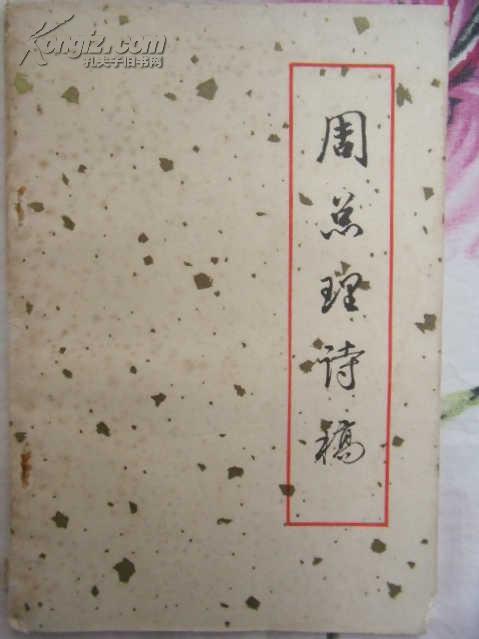 Kongfz.com
孔夫子旧书网
周总理诗稿